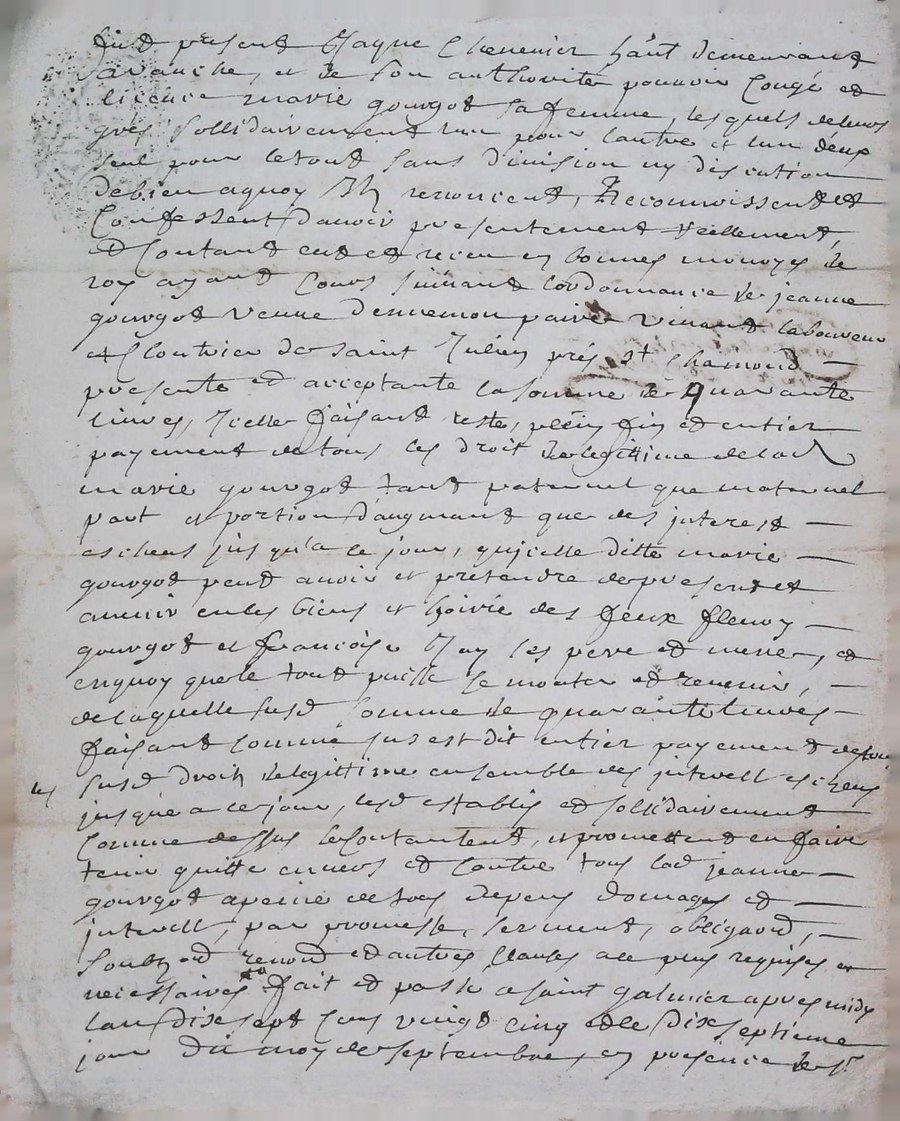 fut present Jaque Chenenier hant demeurant
a auanche, et de son authorité pouvoir Congé et
licence marie gourgot sa femme, lesquels de leurs
grés sollidairement lun pour lautre et lun deux
seul pour le tout sans diuision ny discution
de bien aquoy Ils renoncent, Reconnoissent et
Confessent dauoir presentement reellement
et Contant eut et receu en bonnes monoyes de
roy ayant Cours suiuant lordonnance de jeanne
gourgot veuue dennemon viuant laboureur
et Cloutrier de saint Julien prés st Chamond —
presente et acceptante la somme de quarante
liures, Icelle faisant reste, plein fin et entier
payement de tous les droit de legittime de lad
marie gourgot tant paternel que maternel
part et portion daugmant que des interest —
escheus jusqu'a ce jour, qu'icelle ditte marie —
gourgot peut auoir et pretendre de present et
auenir en les biens et hoirie des feux fleury —
gourgot et francoise les pere et mere, et
enquoy que le tout puisse se monter et reuenir, —
de laquelle susd somme de quarante liures —
faisant comme sus est dit entier payement de tous
les susd droits de legittime ensemble des interests escheus
jusque a ce jour, lesd establis et sollidairement
Comme dessus se Contantent, et promettent en faire
tenir quitte enuers et Contre tous lad jeanne —
gourgot a peine de tous depens domages et —
interest, par promesse, serment, obligaond, —
soubzond renond et autres Clauses a ce plus requises et
necessaires fait et passé a saint galmier apres midy
lan dix sept Cens vingt cinq et le dix septieme
jour du moy de septembre, en presence de sr